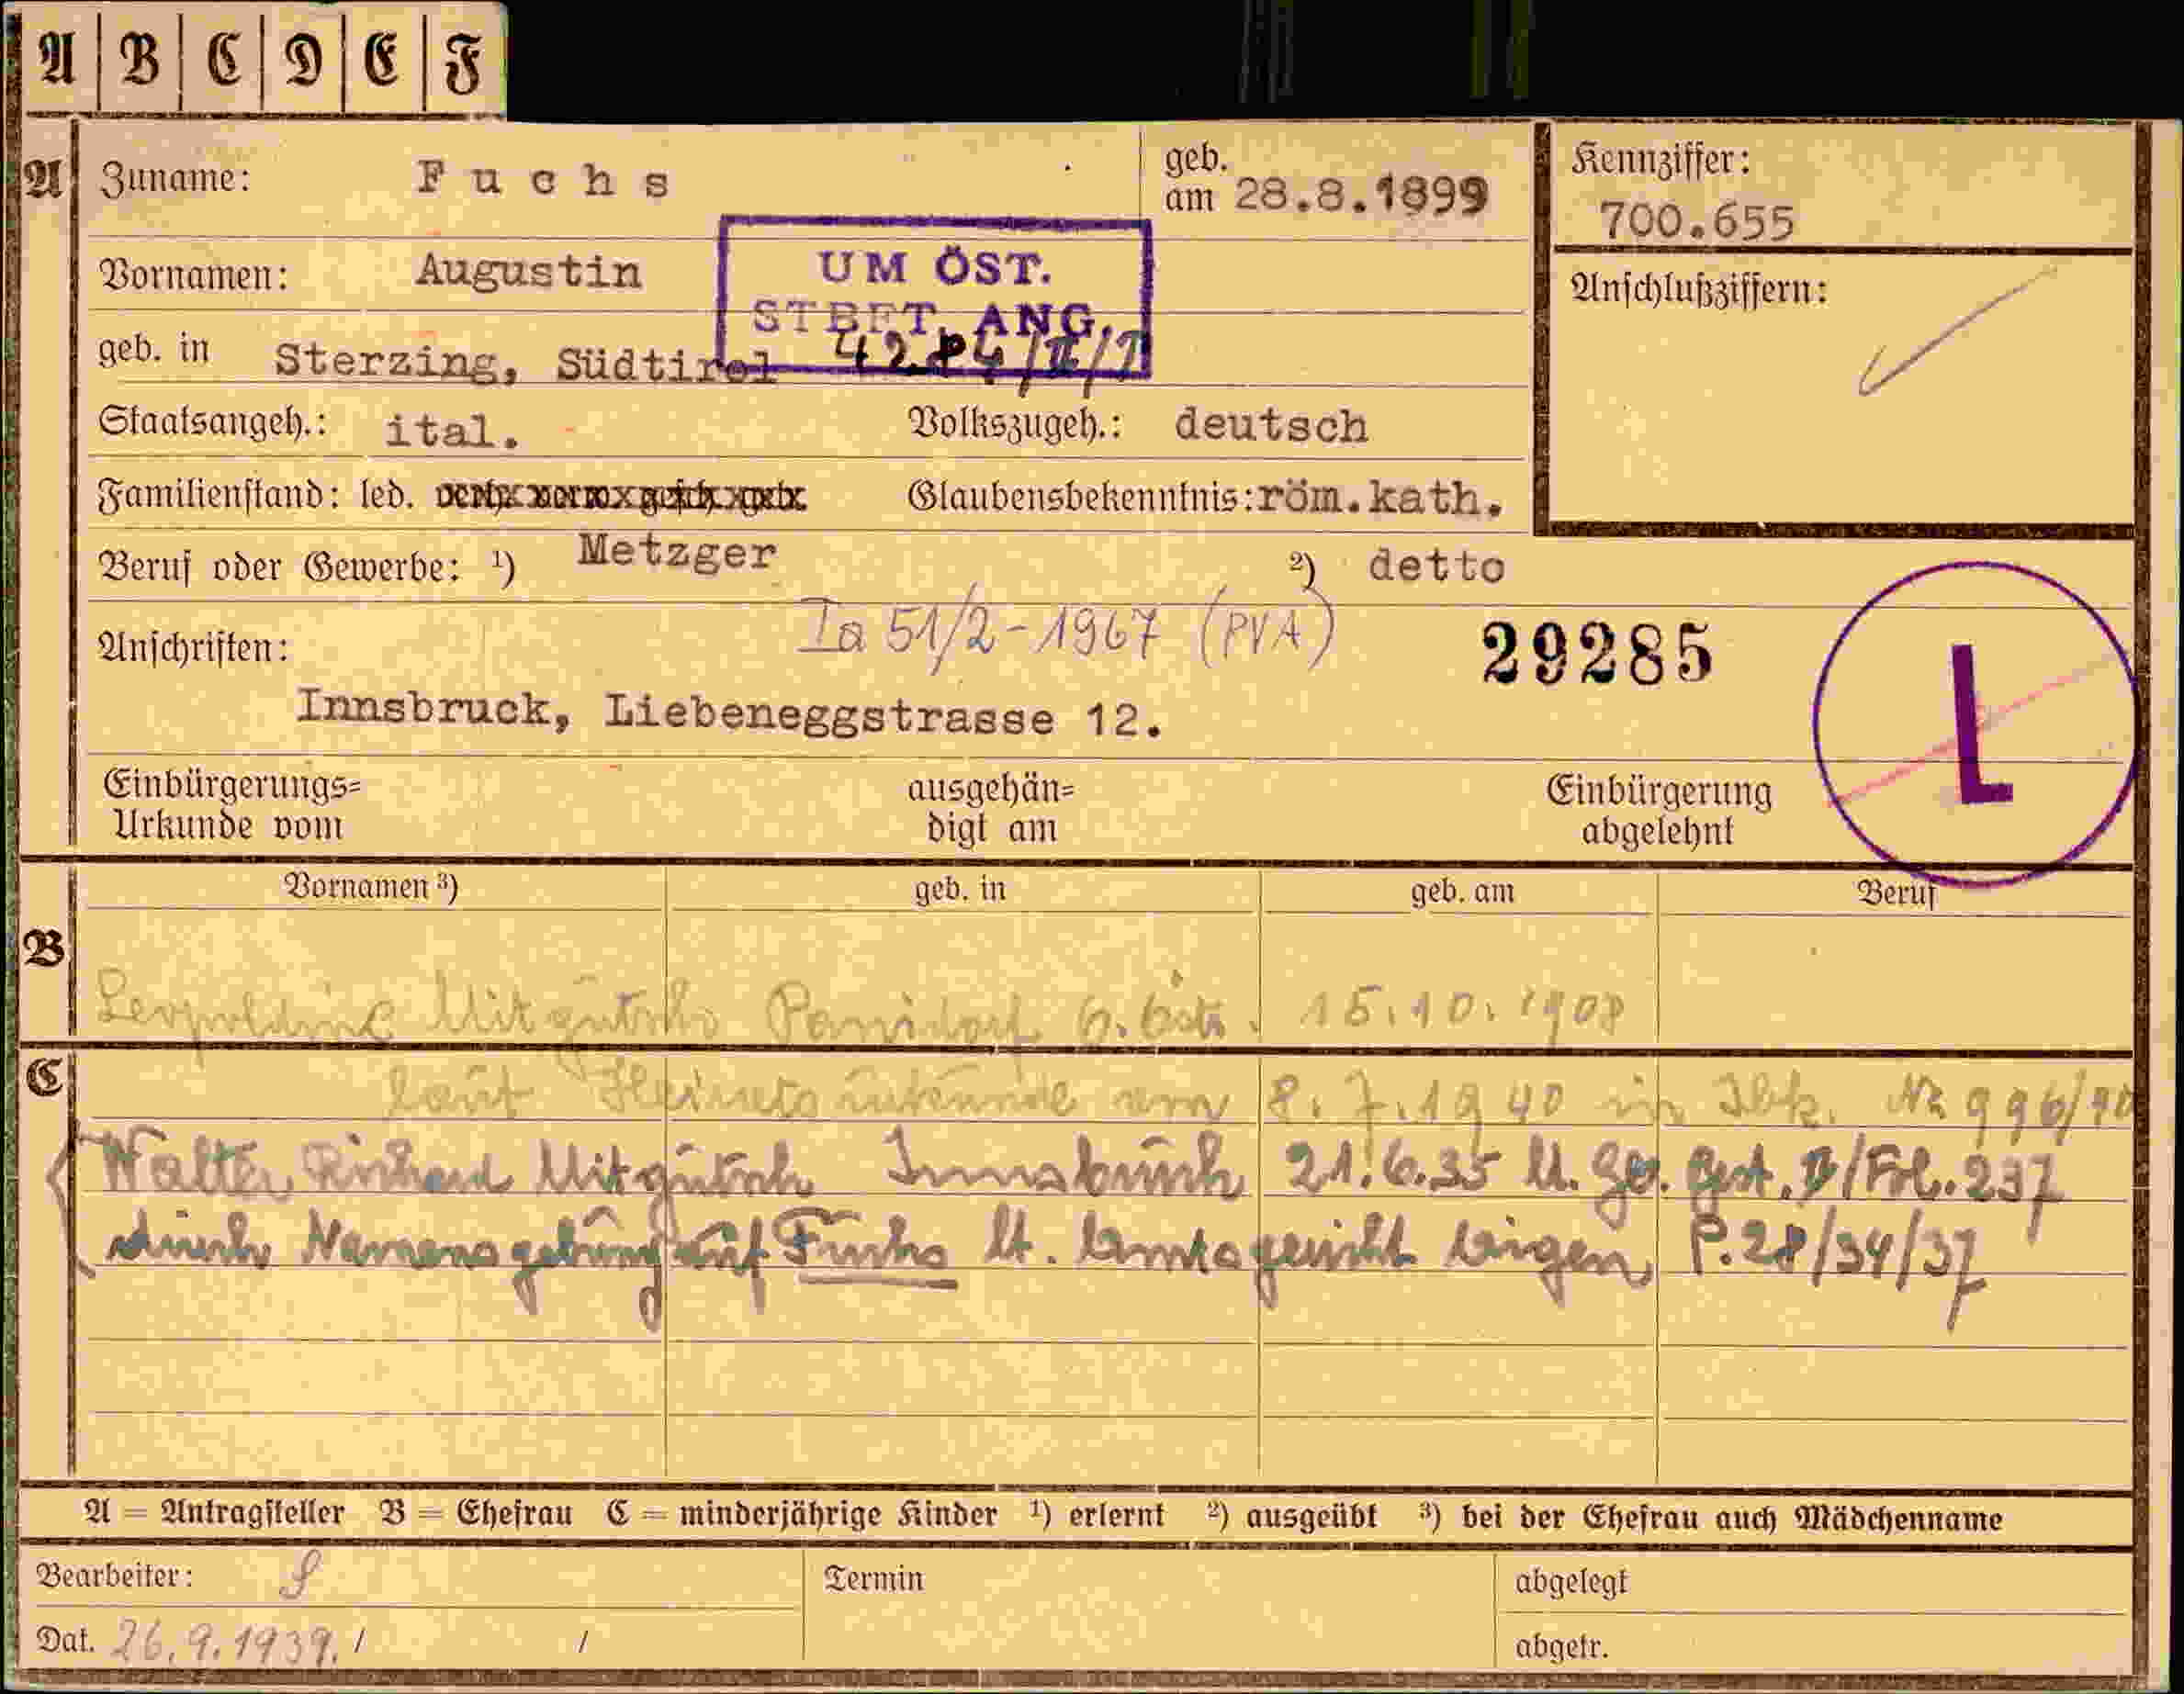 A B C D E F
A Zuname: Fuchs geb. am 28.8.1899 Kennziffer: 700.655
Vornamen: Augustin UM ÖST. Anschlußziffern:
STBFT. ANG.
geb. in Sterzing, Südtirol
Staatsangeh.: ital. Volkszugeh.: deutsch
Familienstand: led. Glaubensbekenntnis: röm.kath.
Beruf oder Gewerbe: 1) Metzger 2) detto
Ia 51/2-1967 (PVA) 29285
Anschriften: L
Innsbruck, Liebeneggstrasse 12.
Einbürgerungs= ausgehän= Einbürgerung
Urkunde vom digt am abgelehnt
Vornamen 3) geb. in geb. am Beruf
B
Leopoldine Mitgutsch 15.10.1908
C
laut Heiratsurkunde vom 8.7.1940 in Ibk. Nr 996/40
Walter Richard Mitgutsch Innsbruck 21.6.35 lt. Fol. 237
durch Namensgebung auf Fuchs lt. Amtsgericht P.28/34/37
A = Antragsteller B = Ehefrau C = minderjährige Kinder 1) erlernt 2) ausgeübt 3) bei der Ehefrau auch Mädchenname
Bearbeiter: S Termin abgelegt
Dat. 26.9.1939. / / abgetr.